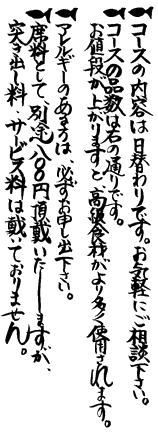 コースの内容は日替わりです。お気軽にご相談下さい。
コースの品数は右の通りです。
お値段が上がりますと、高級食材がより多く使用されます。
アレルギーのある方は、必ずお申し出下さい。
席料として、別途八〇〇円頂戴いたしますが、
突き出し料、サービス料は戴いておりません。